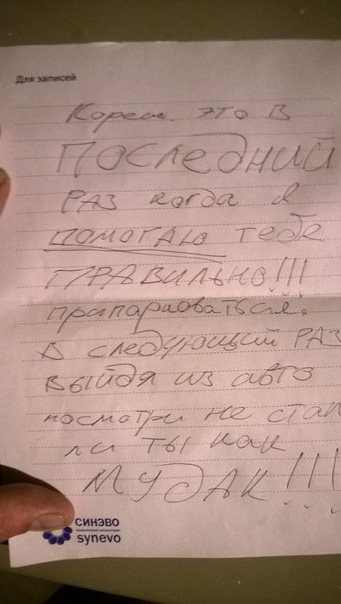 Для записей
Кореш. это в
последний
раз когда я
помогаю тебе
правильно!!!
припарковаться.
В следующий раз
выйдя из авто
посмотри не стал
ли ты как
МУДАК!!!
СИНЭВО
synevo